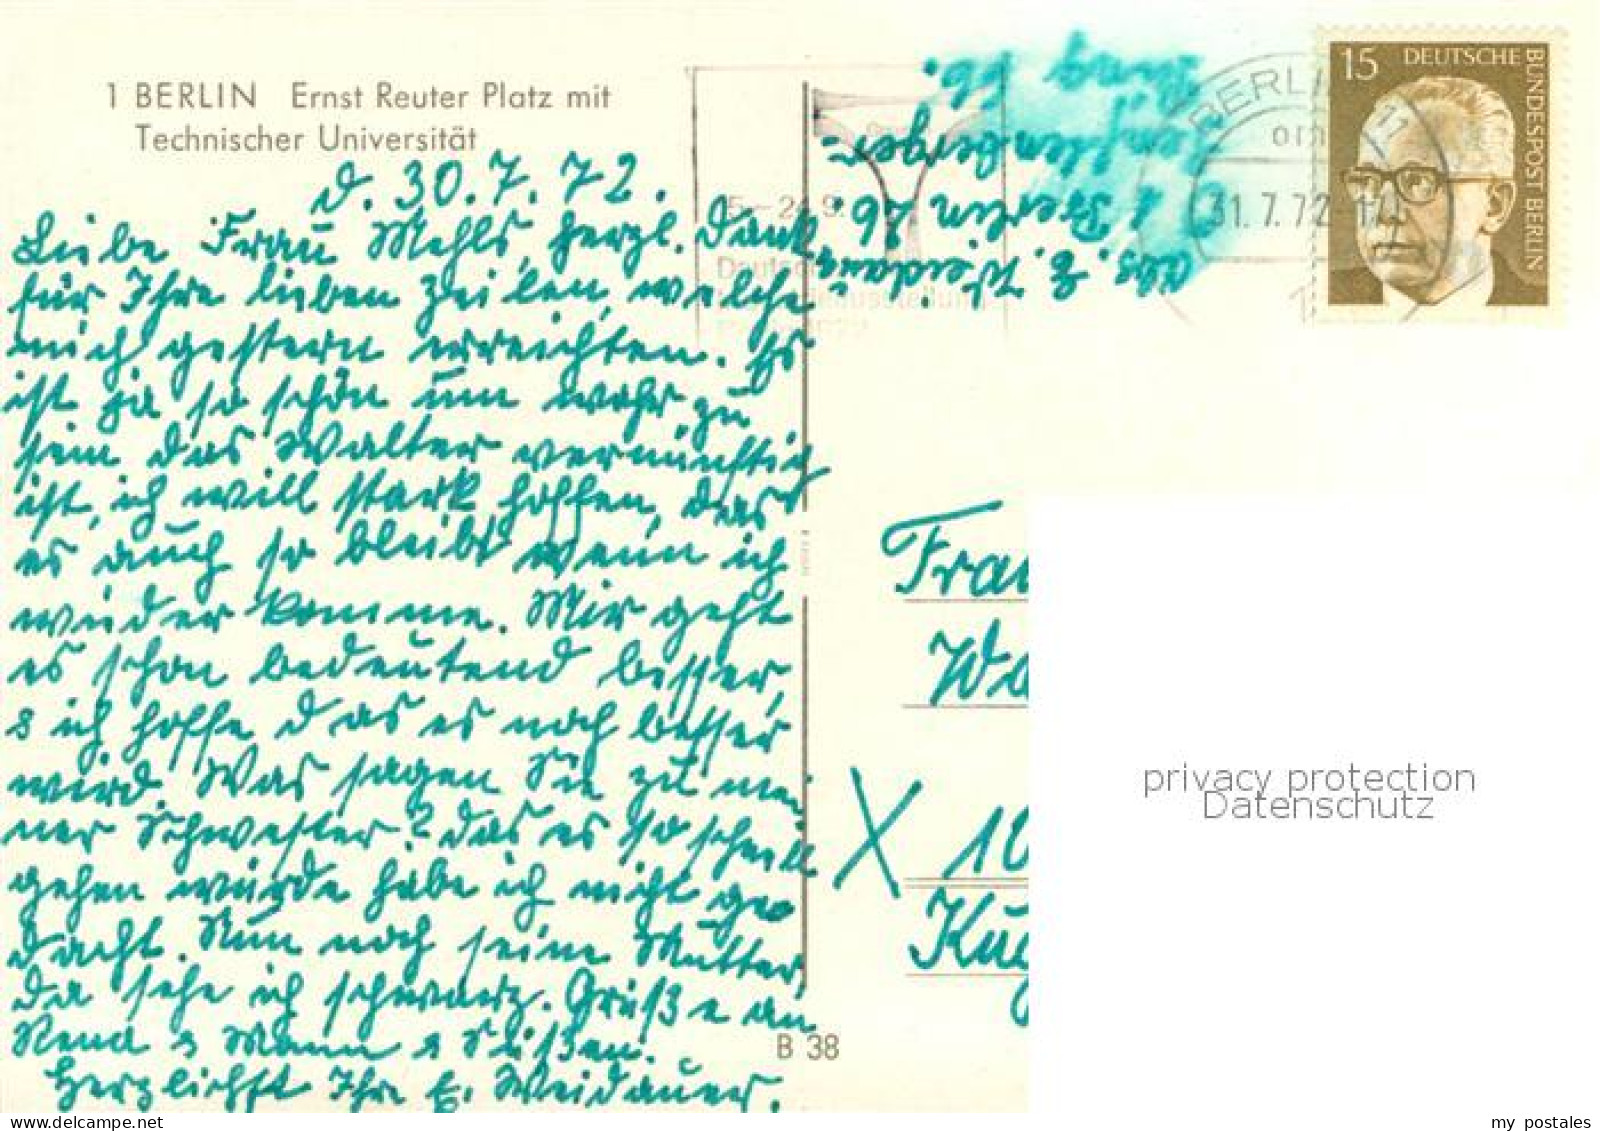 1 BERLIN Ernst Reuter Platz mit
Technischer Universität
d. 30.7.72.
Liebe Frau Mehls, herzl. Dank
für Ihre lieben Zeilen, welche
mich gestern erreichten. Es
ist ja so schön um wahr zu
sein das Walter vernünftig
ist, ich will stark hoffen, dass
es auch so bleibt wenn ich
wieder komme. Mir geht
es schon bedeutend besser,
& ich hoffe das es noch besser
wird. Was sagen Sie zu mei
ner Schwester? das es so schnell
gehen würde habe ich nicht ge
dacht. Nun noch seine Mutter,
da sehe ich schwarz. Grüße an
Rena & Mann & Süßen.
Herzlichst Ihre E. Weidauer.
Abs. E. Weidauer
1 Berlin 26.
Senftenberger-
Ring 66.
15 DEUTSCHE BUNDESPOST BERLIN
BERLIN 11
31.7.72-17
5-24.9.
Frau
X
B 38
privacy protection
Datenschutz
my postales